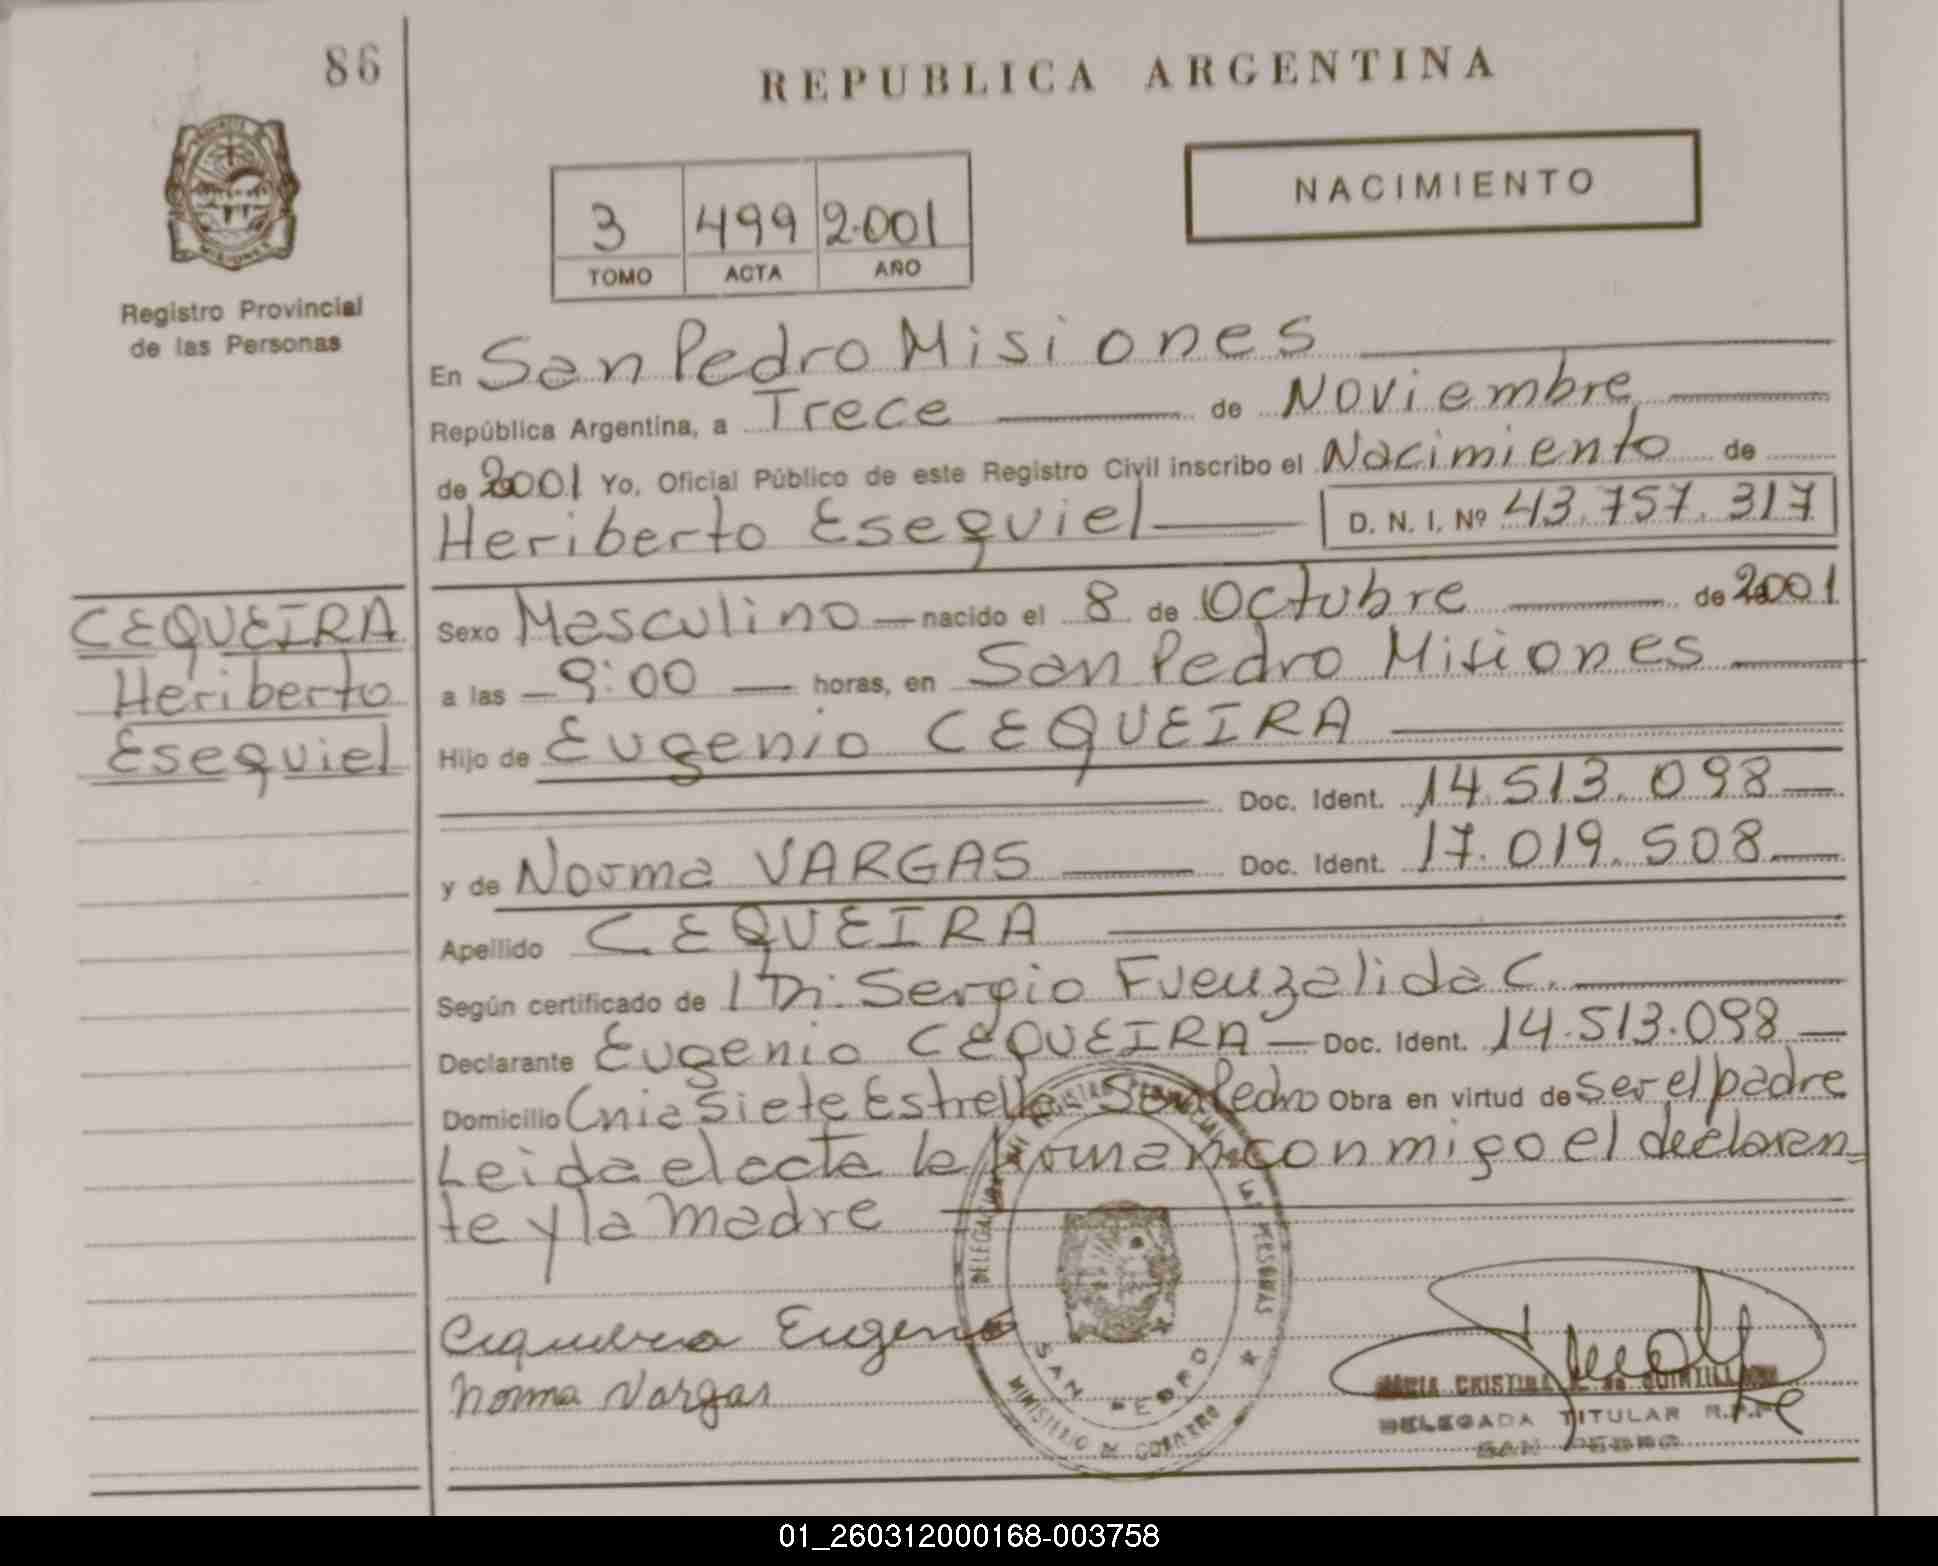 86
REPUBLICA ARGENTINA
NACIMIENTO
3 499 2.001
TOMO ACTA AÑO
MISIONES
Registro Provincial
de las Personas
En San Pedro Misiones
República Argentina, a Trece de Noviembre
de 2001 Yo, Oficial Público de este Registro Civil inscribo el Nacimiento de
Heriberto Esequiel D. N. I. Nº 43.757.317
CEQUEIRA
Heriberto
Esequiel
Sexo Masculino nacido el 8 de Octubre de 2001
a las 9:00 horas, en San Pedro Misiones
Hijo de Eugenio CEQUEIRA
Doc. Ident. 14.513.098
y de Norma VARGAS Doc. Ident. 17.019.508
Apellido CEQUEIRA
Según certificado de Sergio Fuenzalida C.
Declarante Eugenio CEQUEIRA Doc. Ident. 14.513.098
Domicilio Cnia Siete Estrella San Pedro Obra en virtud de ser el padre
Leida el acta la firman conmigo el declaran=
te y la madre
Eugenio
Norma Vargas
DELEGACION REGISTRO PROVINCIAL DE LAS PERSONAS
SAN PEDRO
MINISTERIO DE GOBIERNO
MARIA CRISTINA
DELEGADA TITULAR R.P.P
SAN PEDRO
01_260312000168-003758